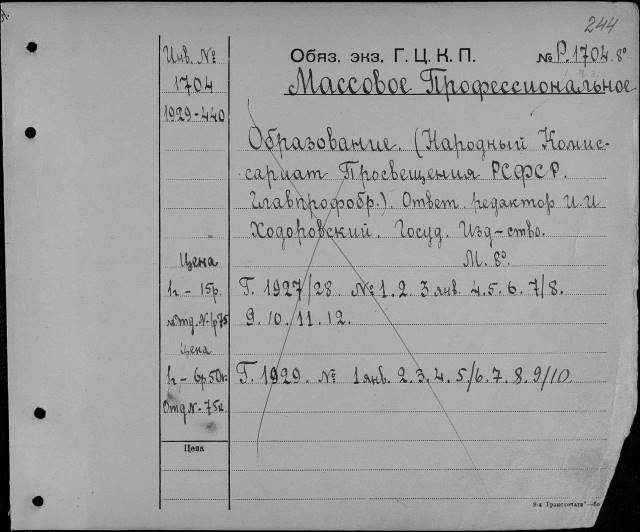 244
Инв. №
Обяз. экз. Г. Ц. К. П.
№ Р. 1704. 8°
1704
Массовое Профессиональное
1929-440
Образование. (Народный Комис-
сариат Просвещения РСФСР.
Главпрофобр.). Ответ. редактор И. И
Ходоровский. Госуд. Изд-ство.
Цена
М. 8°.
1г - 15р.
Г. 1927/28. № 1. 2. 3 янв. 4. 5. 6. 7/8.
отд. N-1р75
9. 10. 11. 12.
Цена
1г - 6р 50к.
Г. 1929. № 1 янв. 2. 3. 4. 5/6. 7. 8. 9/10
Отд N- 75к.
Цена